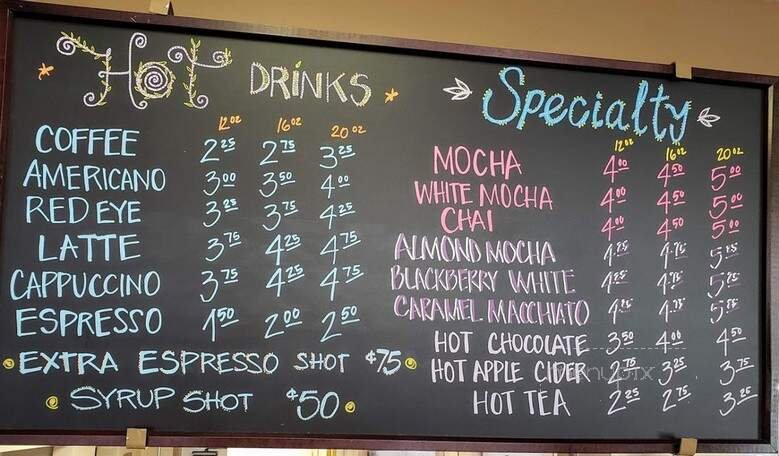 HOT DRINKS
12 oz 16 oz 20 oz
COFFEE 2 25 2 75 3 25
AMERICANO 3 00 3 50 4 00
RED EYE 3 25 3 75 4 25
LATTE 3 75 4 25 4 75
CAPPUCCINO 3 75 4 25 4 75
ESPRESSO 1 50 2 00 2 50
EXTRA ESPRESSO SHOT $75
SYRUP SHOT $50
Specialty
12 oz 16 oz 20 oz
MOCHA 4 00 4 50 5 00
WHITE MOCHA 4 00 4 50 5 00
CHAI 4 00 4 50 5 00
ALMOND MOCHA 4 25 4 75 5 25
BLACKBERRY WHITE 4 25 4 75 5 25
CARAMEL MACCHIATO 4 25 4 75 5 25
HOT CHOCOLATE 3 50 4 00 4 50
HOT APPLE CIDER 2 75 3 25 3 75
HOT TEA 2 25 2 75 3 25
menupix